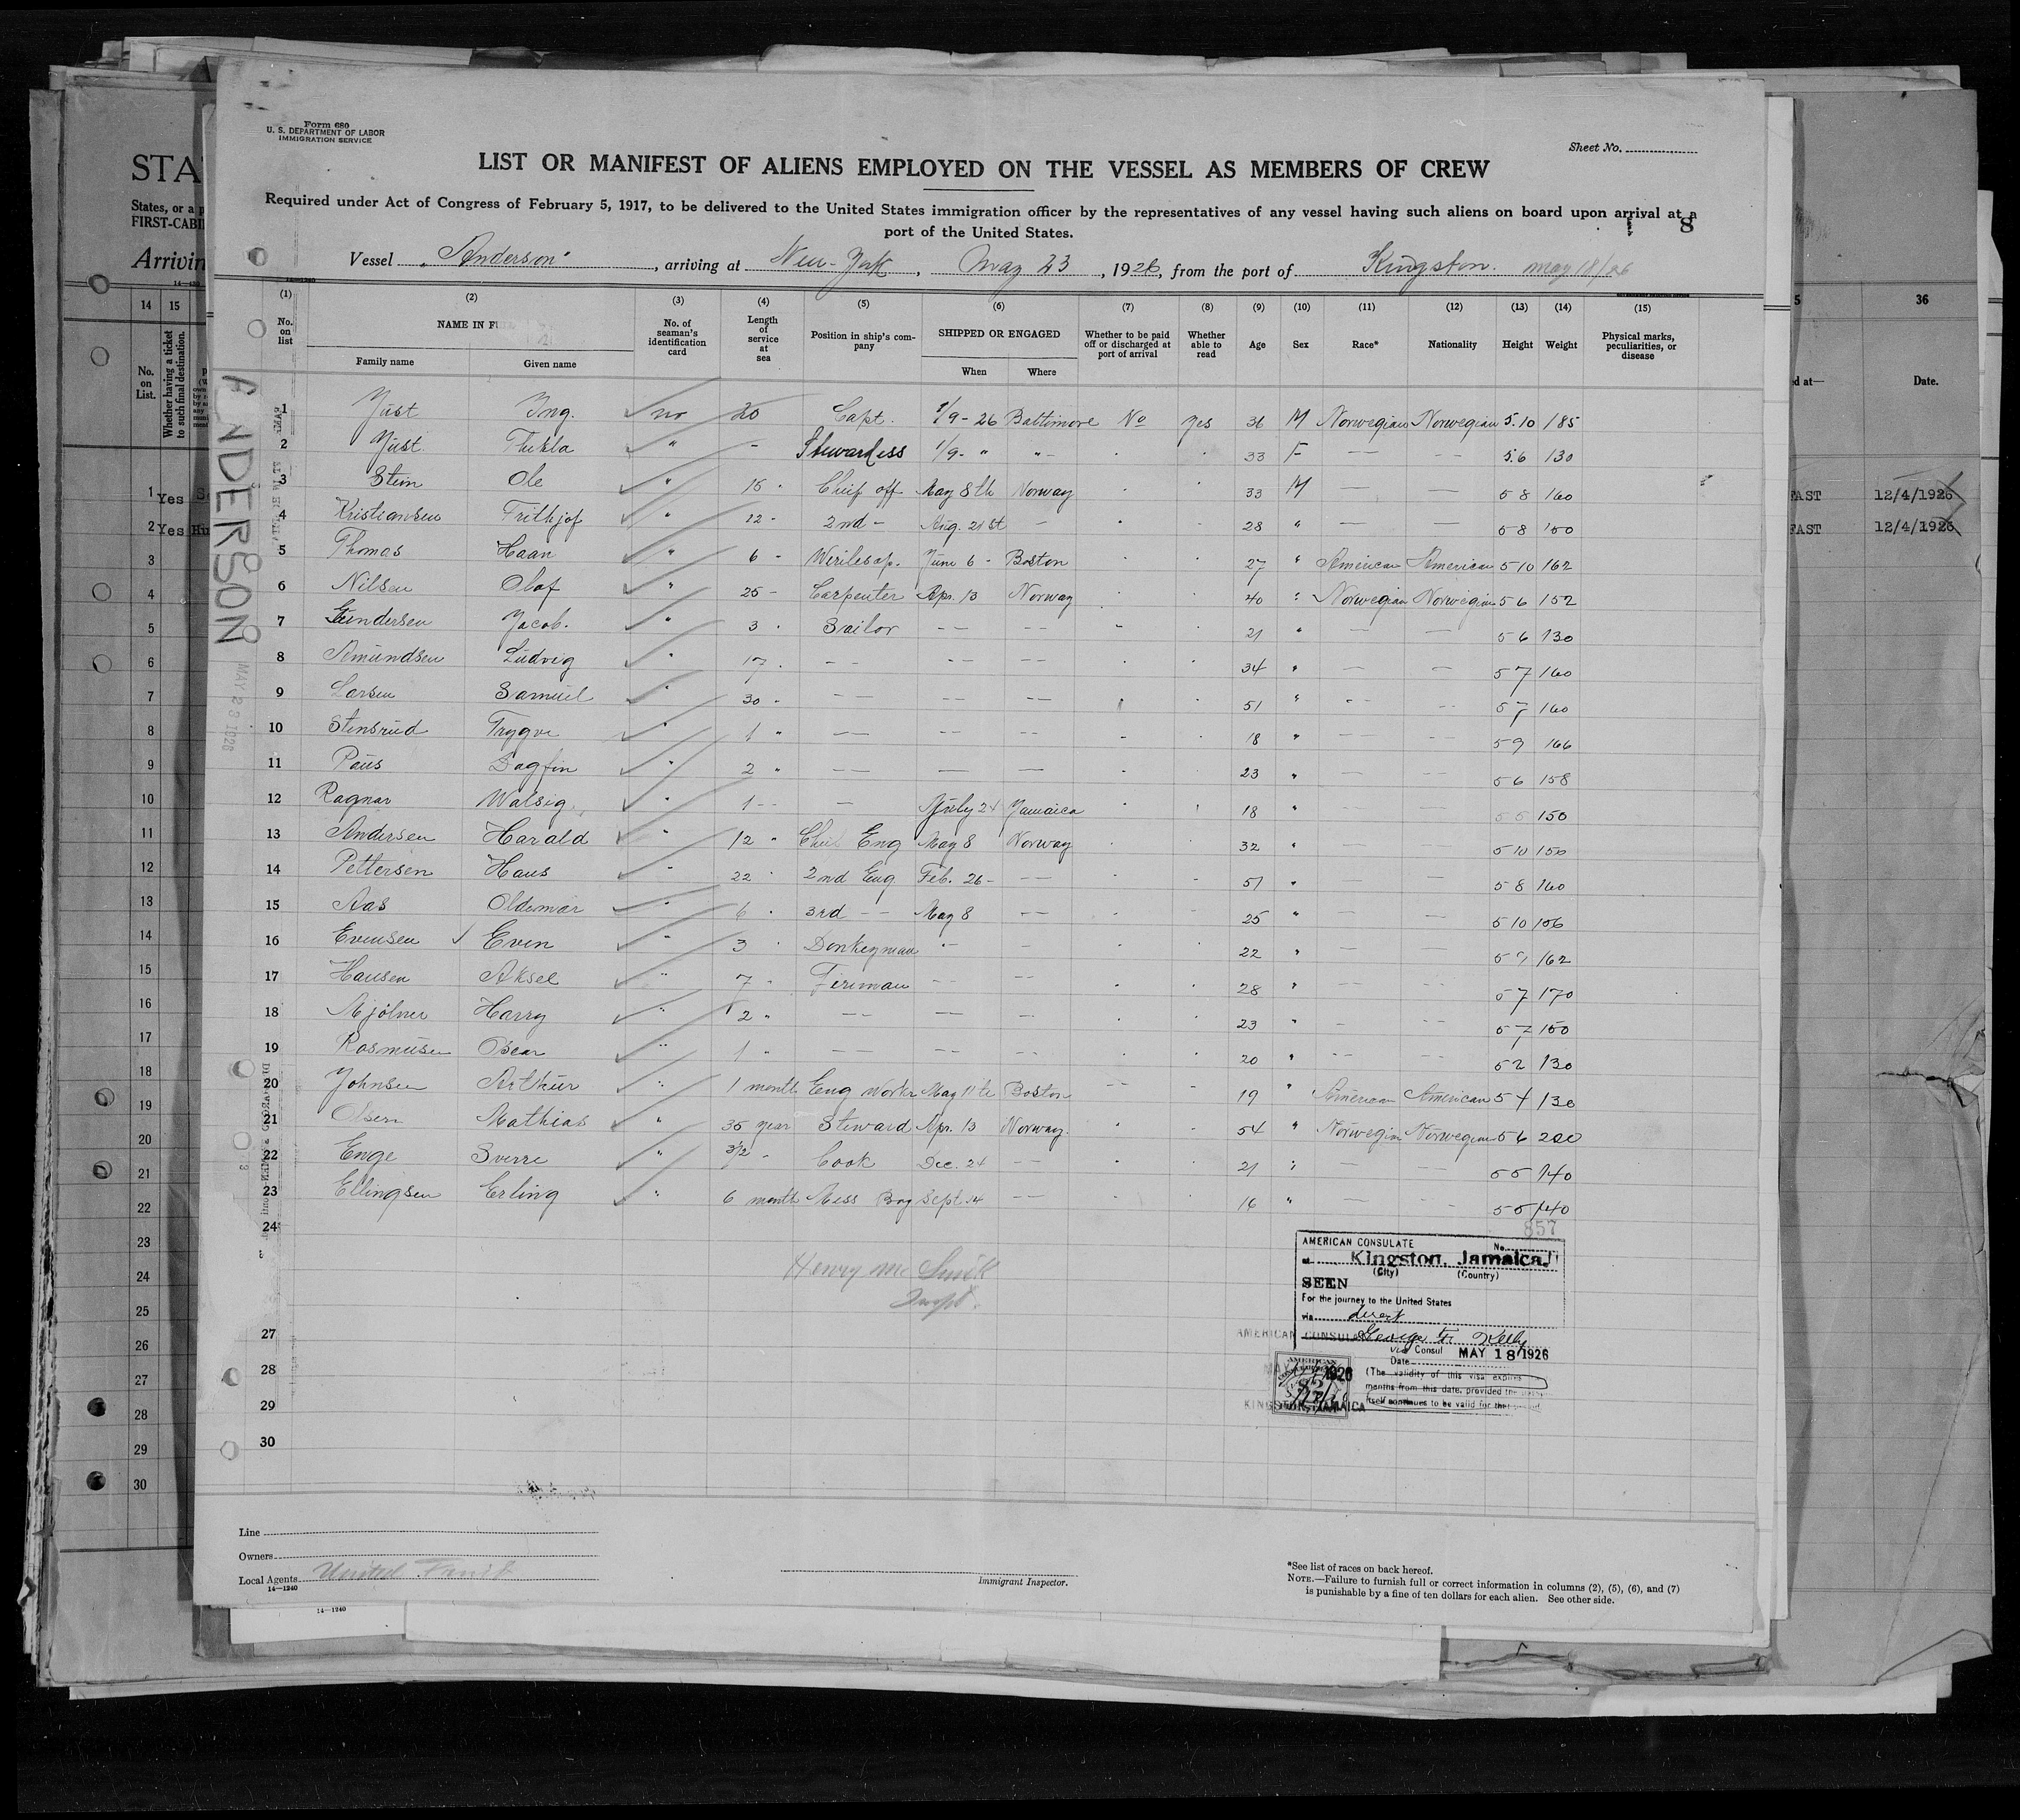 Form 680
U. S. DEPARTMENT OF LABOR
IMMIGRATION SERVICE
Sheet No.
LIST OR MANIFEST OF ALIENS EMPLOYED ON THE VESSEL AS MEMBERS OF CREW
Required under Act of Congress of February 5, 1917, to be delivered to the United States immigration officer by the representatives of any vessel having such aliens on board upon arrival at a
port of the United States.
8
Vessel "Anderson", arriving at New-York, May 23, 1926, from the port of Kingston. May 18/26
(1) (2) (3) (4) (5) (6) (7) (8) (9) (10) (11) (12) (13) (14) (15)
No. on list
NAME IN FULL
Family name Given name
No. of seaman's identification card
Length of service at sea
Position in ship's company
SHIPPED OR ENGAGED
When Where
Whether to be paid off or discharged at port of arrival
Whether able to read
Age Sex Race* Nationality Height Weight
Physical marks, peculiarities, or disease
1 Just Ing. no 20 Capt. 1/9-26 Baltimore No Yes 36 M Norwegian Norwegian 5.10 185
2 Just Thekla " - Stewardess 1/9- " " - 33 F — — 5.6 130
3 Stein Ole " 15 Chief off May 8th Norway 33 M — — 5 8 160
4 Kristiansen Frithjof " 12 - 2nd - Aug. 21st - 28 " — — 5 8 150
5 Thomas Haan " 6 - June 6 - Boston 27 " American American 5 10 162
6 Nilsen Olaf " 25 - Carpenter Apr. 13 Norway 40 " Norwegian Norwegian 5 6 152
7 Gundersen Jacob. " 3 Sailor — — 21 " — — 5 6 130
8 Amundsen Ludvig " 17 — — — 34 " — — 5 7 160
9 Larsen Samuel " 30 - — — — 51 " — — 5 7 160
10 Stensrud Trygve " 1 " — — — 18 " — — 5 9 166
11 Paus Dagfin " 2 " — — — 23 " — — 5 6 158
12 Ragnar Walsig " 1 - — July 24 Jamaica 18 " — — 5 5 150
13 Andersen Harald " 12 " Chief Eng May 8 Norway 32 " — — 5 10 150
14 Pettersen Hans " 22 2nd Eng Feb. 26 - — 51 " — — 5 8 160
15 Aas Oldemar " 6 3rd — May 8 — 25 " — — 5 10
16 Evensen Even " 3 Donkeyman — — 22 " — — 162
17 Hansen Aksel " 7 - Fireman — — 28 " — — 5 7 170
18 Mjölner Harry " 2 " — — — 23 " — — 5 7 150
19 Rasmusen Oscar " 1 " — — — 20 " — — 5 2 130
20 Johnsen Arthur " 1 month Eng Workr May 11th Boston 19 " American American 5 4 130
21 Olsen Mathias " 35 year Steward Apr. 13 Norway. 54 " Norwegian Norwegian 5 6 200
22 Enge Sverre " 3½ - Cook Dec. 24 — 21 " — — 5 5 140
23 Ellingsen Erling " 6 month Mess Boy Sept. 14 — 16 " — — 5 5 140
24
27
28
29
30
Henry Mc
Inspt.
857
AMERICAN CONSULATE
No.
at Kingston, Jamaica.
(City) (Country)
SEEN
For the journey to the United States
via direct
George F. Kelly
Vice Consul
Date MAY 18 1926
(The validity of this visa expires
months from this date, provided the
itself continues to be valid for that period.
AMERICAN CONSULATE
MAY 1926
KINGSTON, JAMAICA
Line
Owners
Local Agents United Fruit
14—1240
Immigrant Inspector.
*See list of races on back hereof.
NOTE.—Failure to furnish full or correct information in columns (2), (5), (6), and (7)
is punishable by a fine of ten dollars for each alien. See other side.
14—1240
ANDERSON
MAY 23 1926
STA
States, or a p
FIRST-CABI
Arrivin
14 15
No. on List.
Whether having a ticket to such final destination.
1 Yes
2 Yes
3
4
5
6
7
8
9
10
11
12
13
14
15
16
17
18
19
20
21
22
23
24
25
26
27
28
29
30
36
Date.
EAST 12/4/1926
EAST 12/4/1926